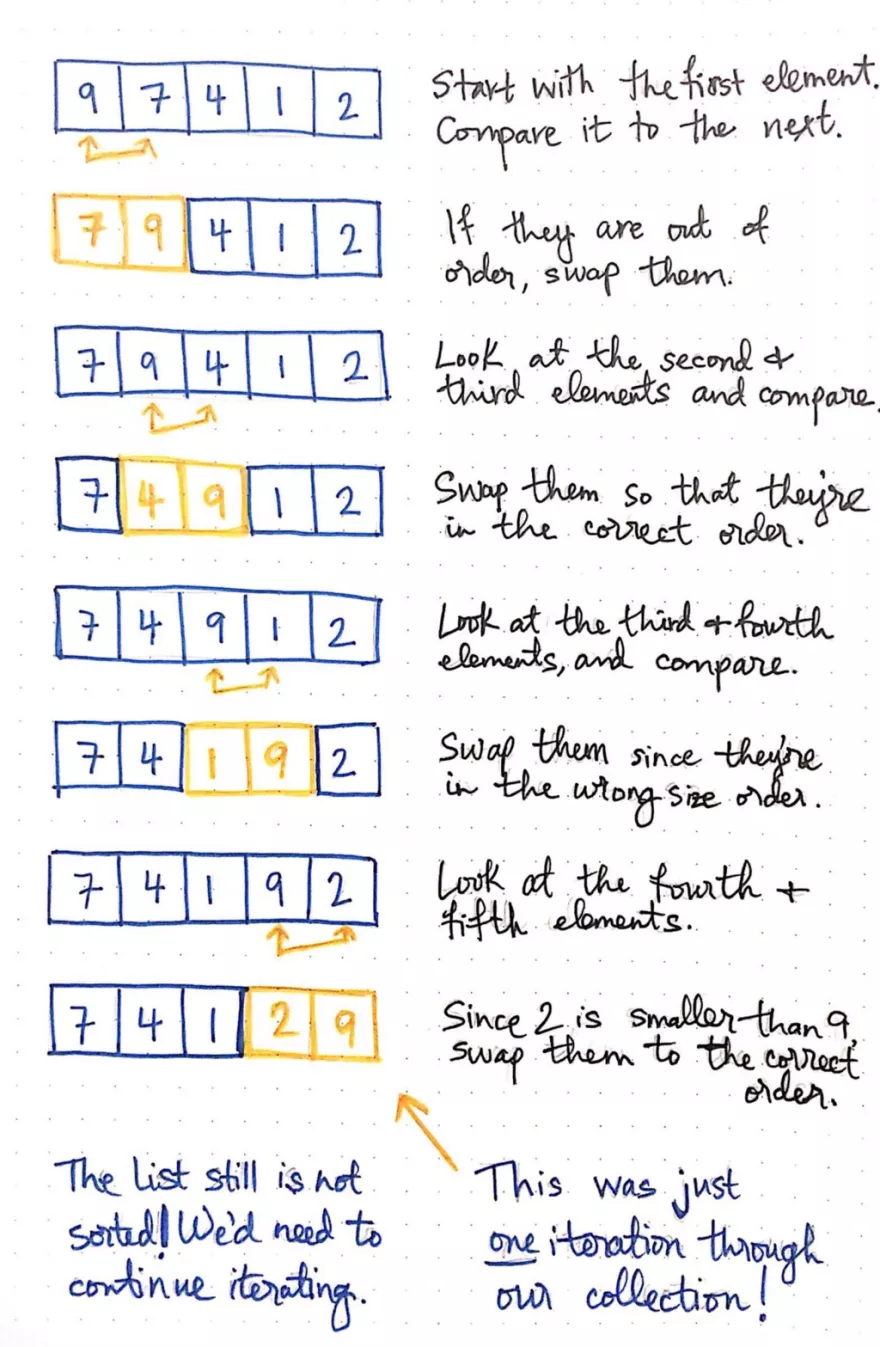 9 7 4 1 2
Start with the first element.
Compare it to the next.
7 9 4 1 2
If they are out of
order, swap them.
7 9 4 1 2
Look at the second &
third elements and compare.
7 4 9 1 2
Swap them so that they're
in the correct order.
7 4 9 1 2
Look at the third & fourth
elements, and compare.
7 4 1 9 2
Swap them since they're
in the wrong size order.
7 4 1 9 2
Look at the fourth +
fifth elements.
7 4 1 2 9
Since 2 is smaller than 9,
swap them to the correct
order.
The list still is not
sorted! We'd need to
continue iterating.
This was just
one iteration through
our collection!